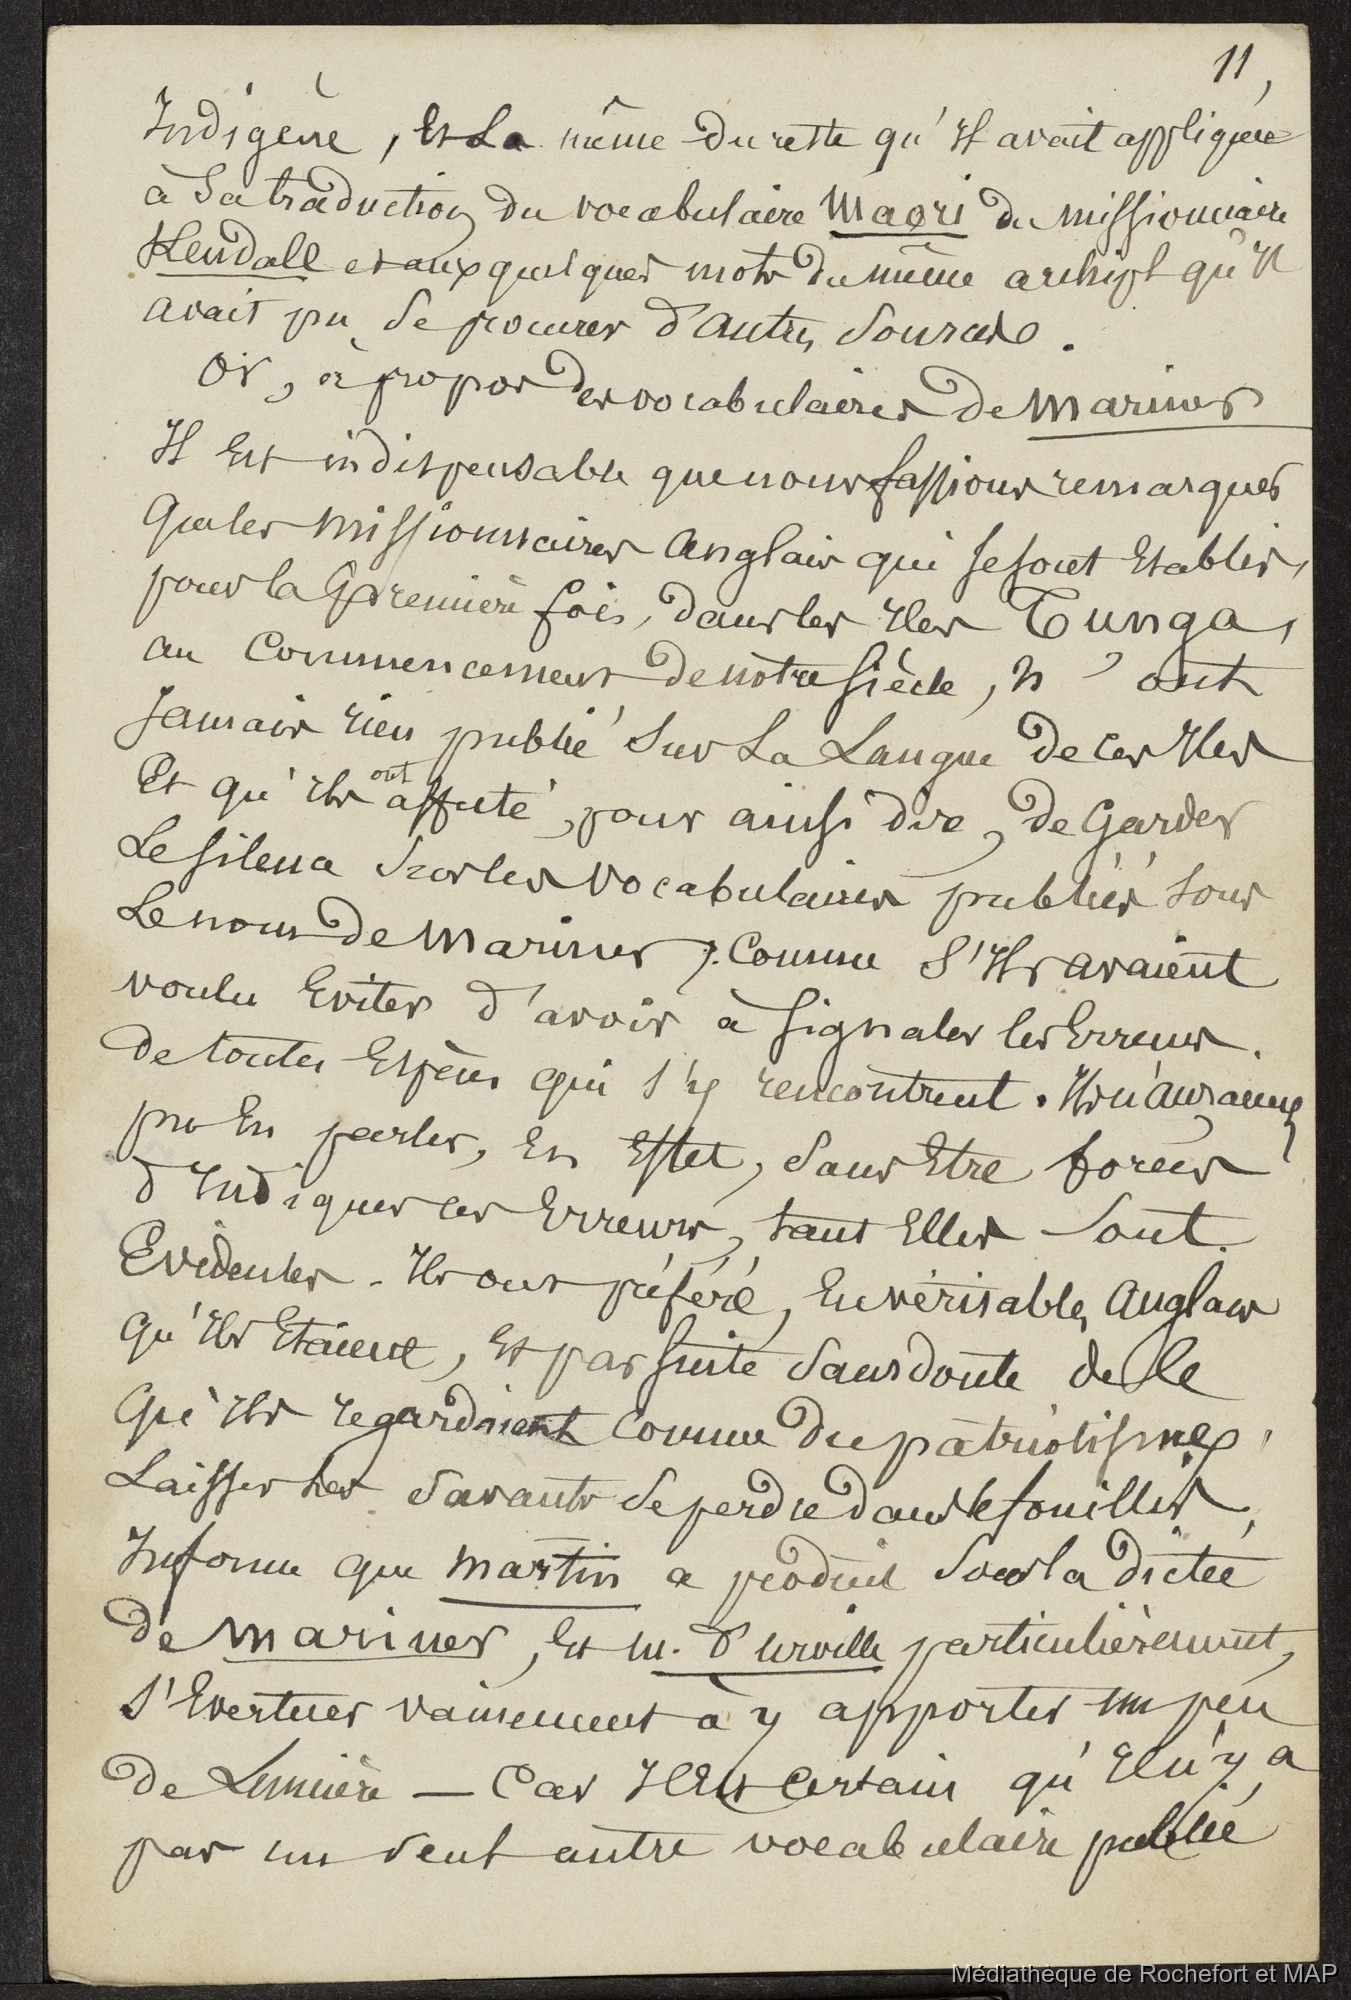 11,
Indigène, Et La même du reste qu'Il avait appliquée
à Sa traduction du vocabulaire Maori du Missionnaire
Kendall et aux quelques mots du même archipl qu'Il
avait pu Se procurer d'autres Sources.
Or, à propos des vocabulaires de Mariner
Il Est indispensable que nous fassions remarquer
que les Missionnaires Anglais qui se sont Etablis,
pour la première fois, dans les Iles Tunga,
au Commencement de notre siècle, n'ont
Jamais rien publié Sur La Langue de ces Iles
Et qu'ils ont affecté, pour ainsi dire, de Garder
Le silence Sur les vocabulaires publiés Sous
Le nom de Mariner, Comme S'Ils avaient
voulu Eviter d'avoir à signaler les Erreurs
de toutes Espèces qui s'y rencontrent. Ils n'auraient
pu En parler, En Effet, Sans Etre forcés
d'Indiquer ces Erreurs, tant Elles Sont
Evidentes. Ils ont préféré, En véritables Anglais
qu'Ils Etaient, Et par suite Sans doute de ce
qu'Ils regardaient Comme du patriotisme,
Laisser les Savants Se perdre dans le fouillis
Informe que Martin a produit Sous la dictée
de Mariner, Et M. d'Urville particulièrement,
S'Evertuer vainement à y apporter un peu
de Lumière — Car Il Est Certain qu'Il n'y a
pas un Seul autre vocabulaire publié
Médiathèque de Rochefort et MAP